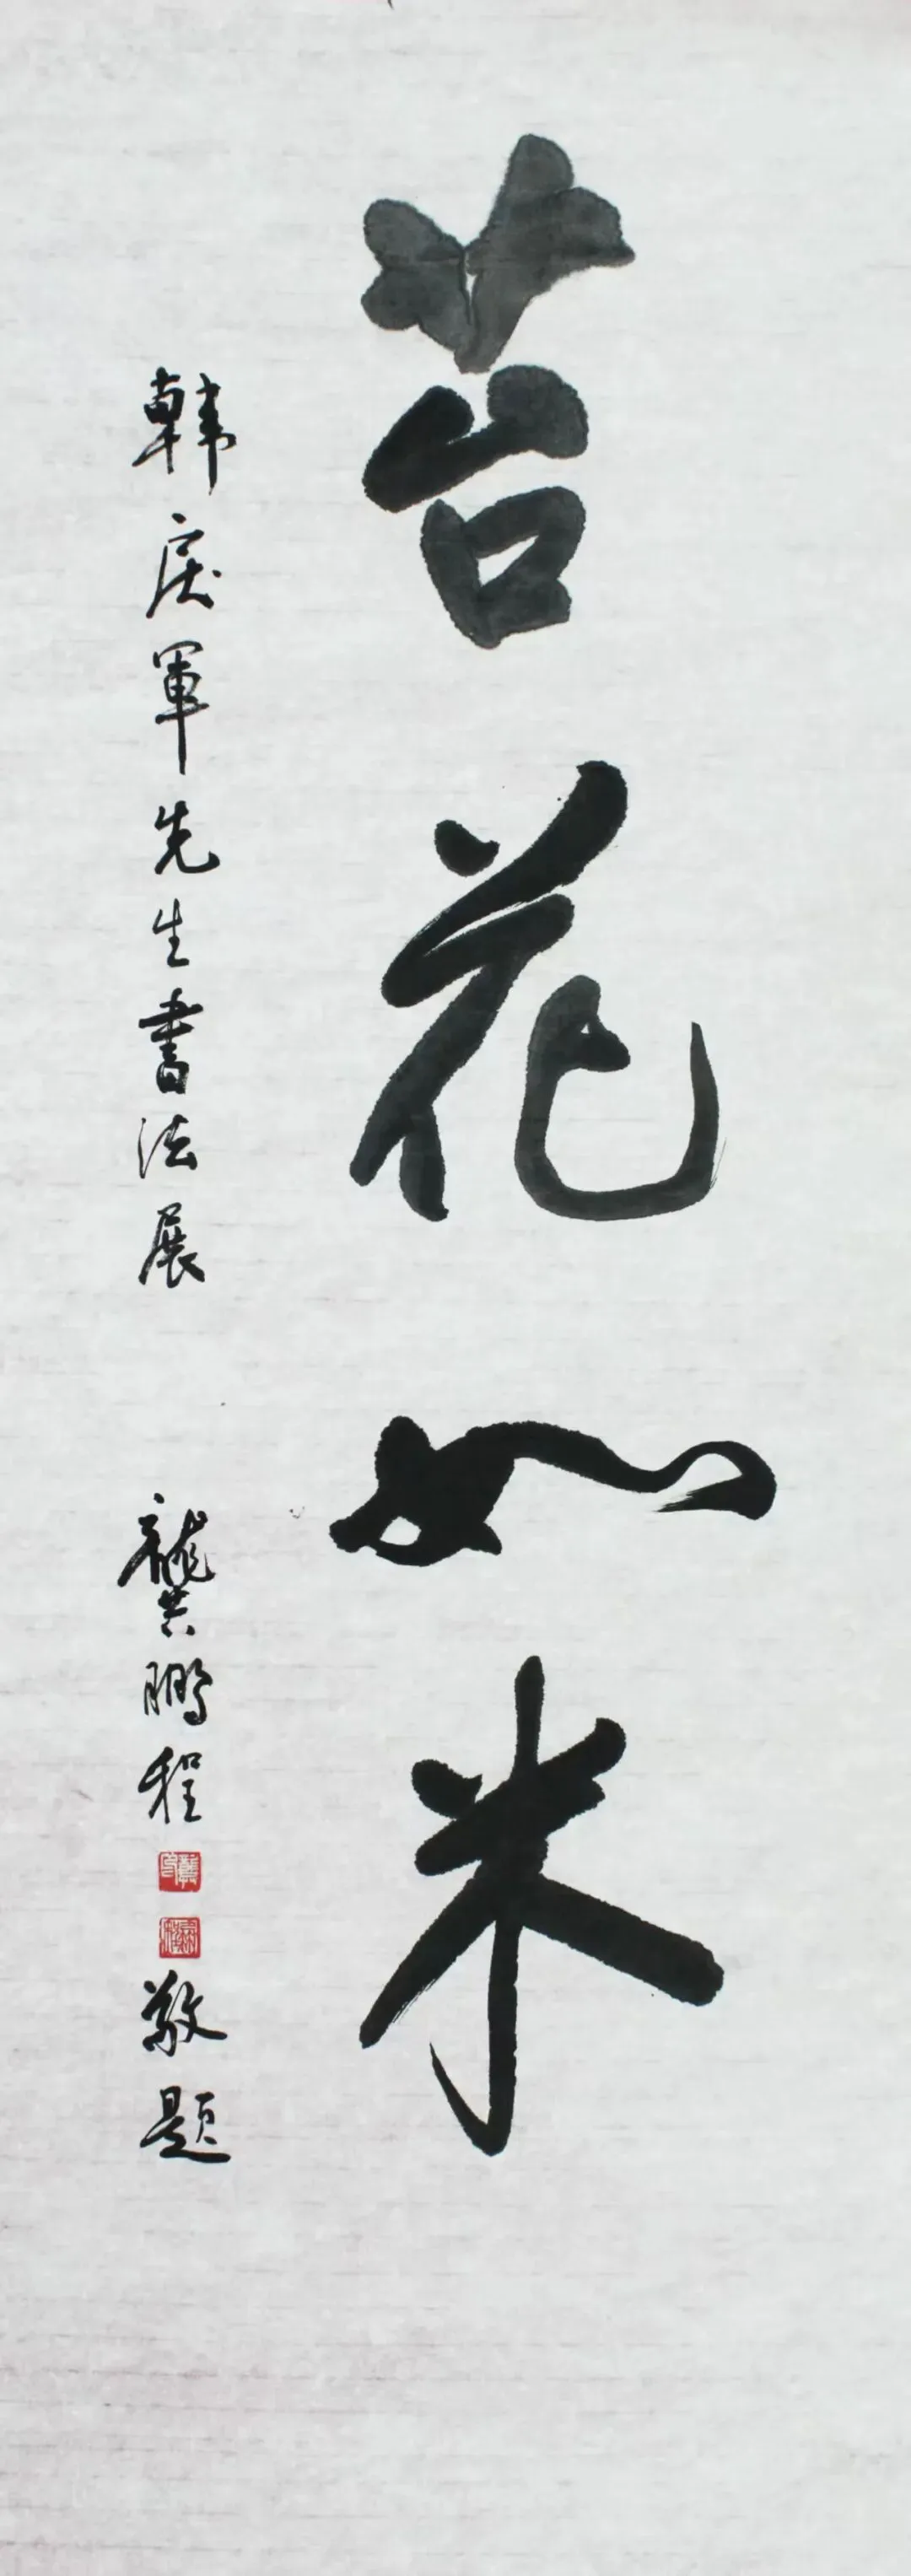 苔花如米
韩戾軍先生書法展
龔鵬程
敬题